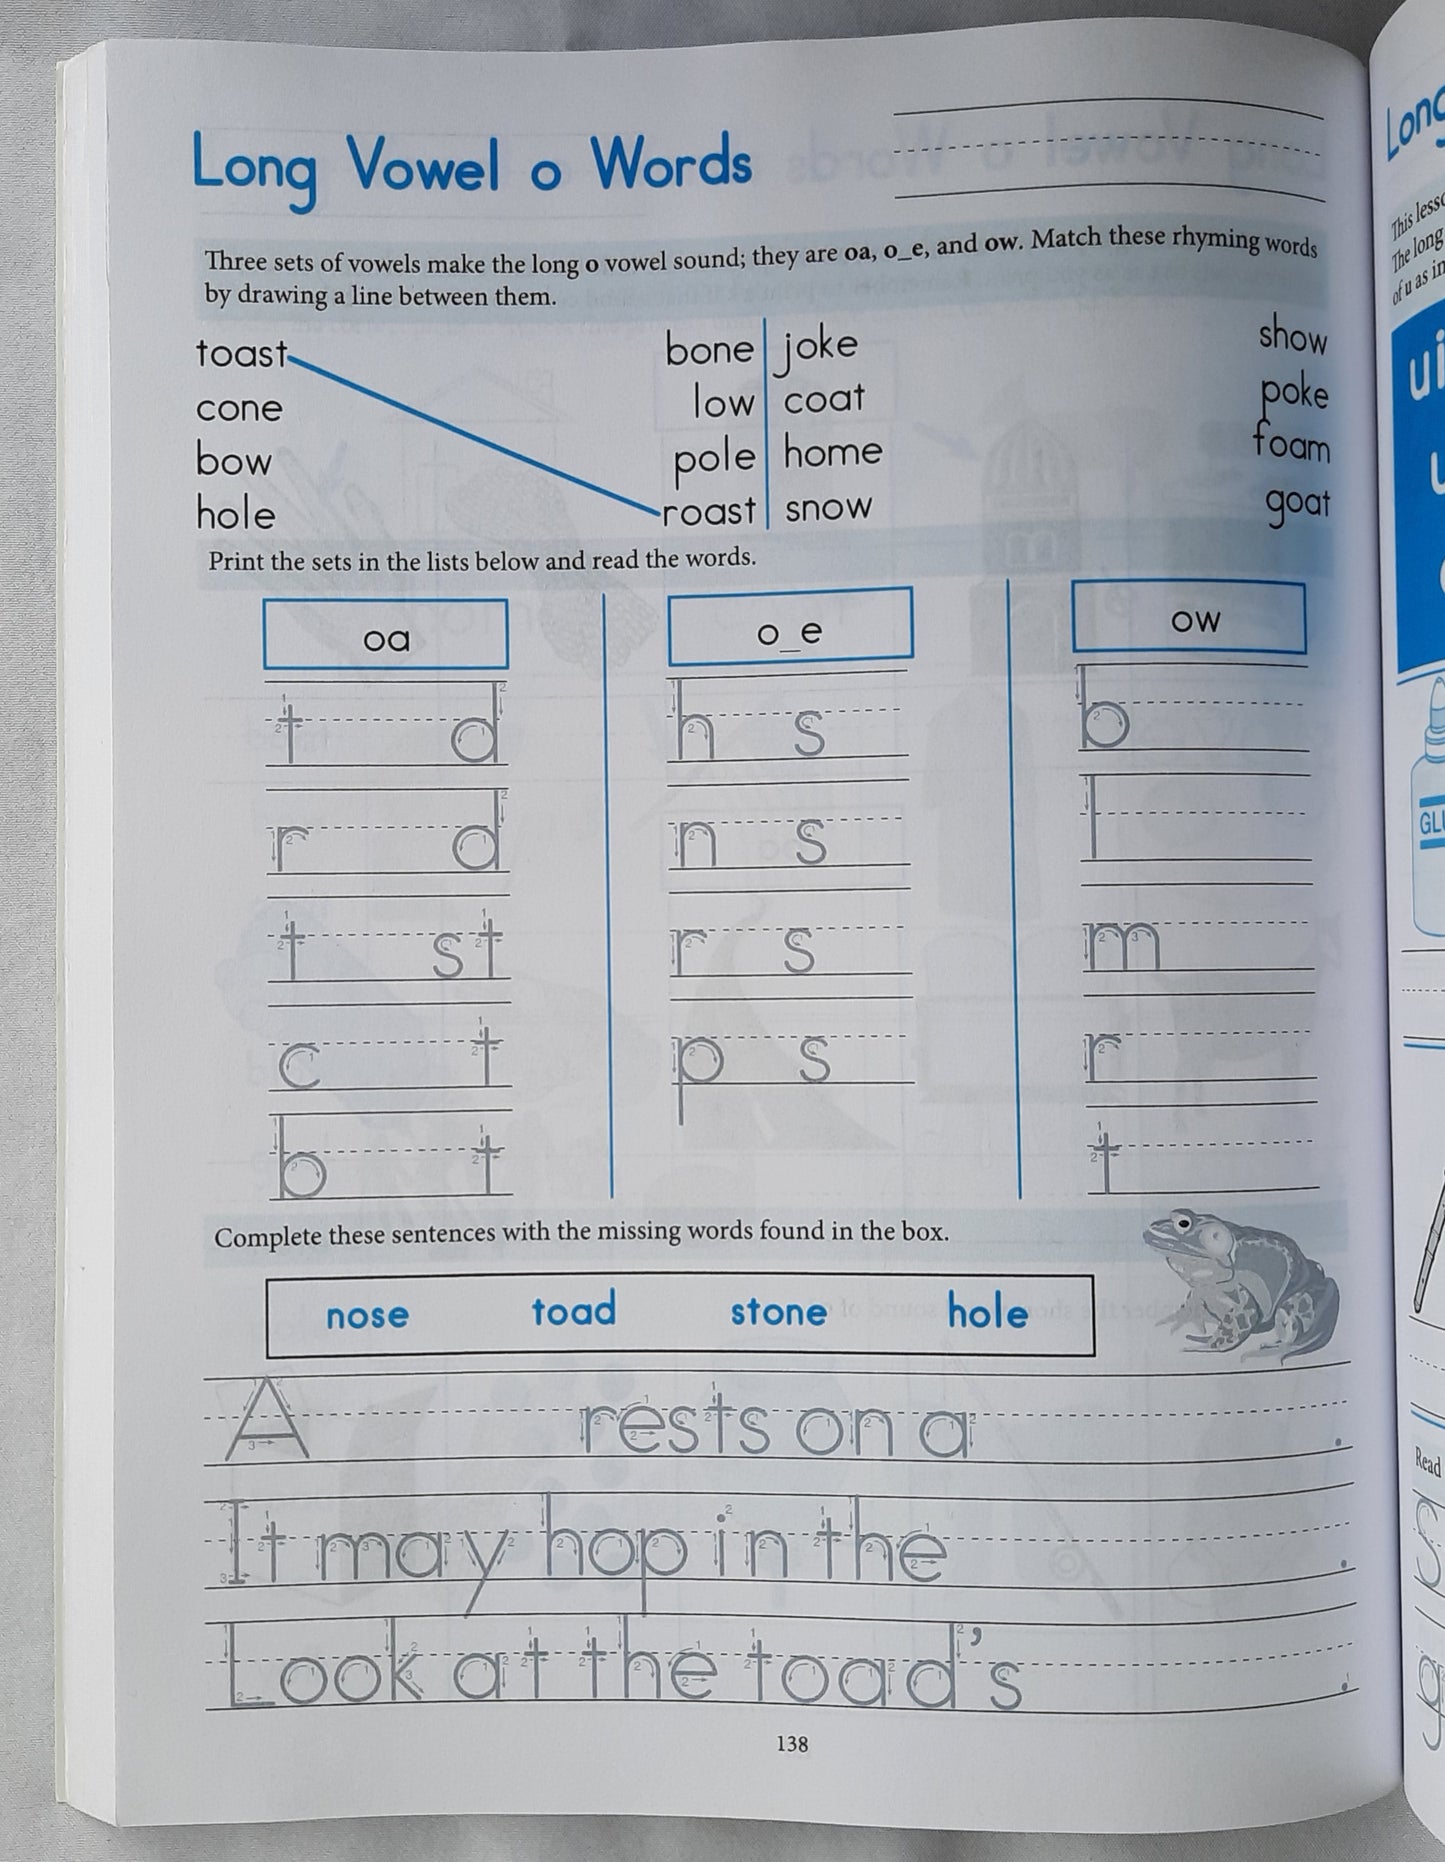 Long Vowel o Words
Three sets of vowels make the long o vowel sound; they are oa, o_e, and ow. Match these rhyming words
by drawing a line between them.
toast bone joke show
cone low coat poke
bow pole home foam
hole roast snow goat
Print the sets in the lists below and read the words.
oa o_e ow
t d h s b
r d n s l
t st r s m
c t p s r
b t t
Complete these sentences with the missing words found in the box.
nose toad stone hole
A rests on a .
It may hop in the .
Look at the toad's .
138
Long
This
The long
of u as in
ui
Read